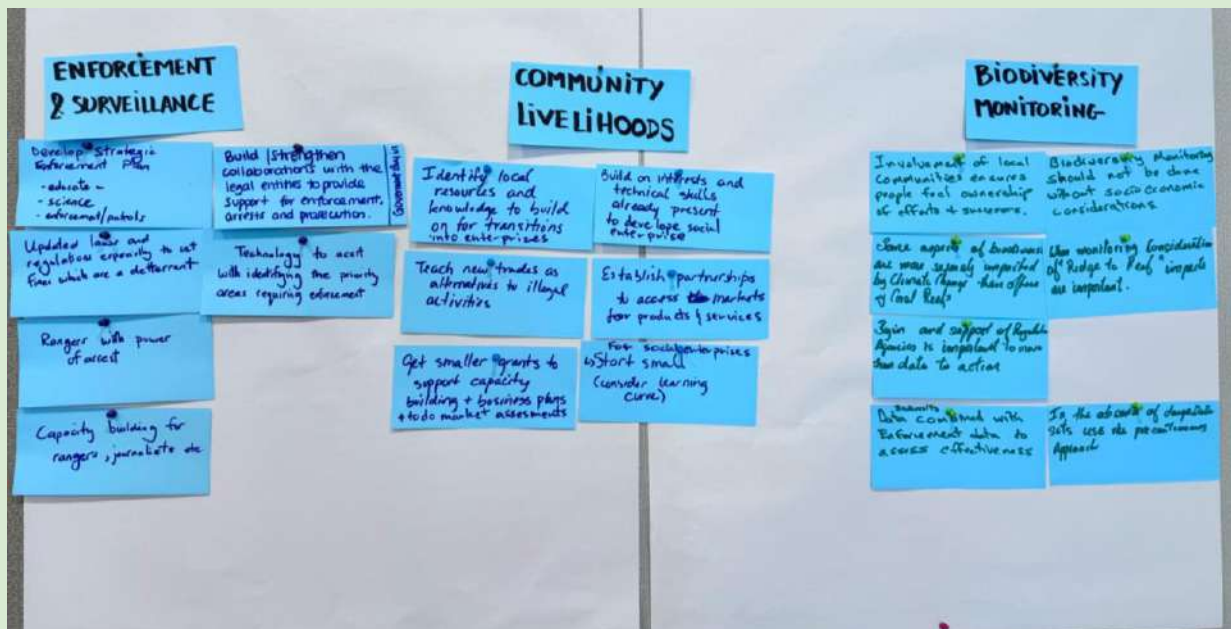 ENFORCEMENT
& SURVEILLANCE
Develop Strategic
Enforcement Plan
- educate -
- science
- enforcement/patrols
Build / strengthen
collaborations with the
legal entities to provide
support for enforcement,
arrests and prosecution.
Government
Updated laws and
regulations especially to set
fines which are a detterrant
Technology to
with identifying the priority
areas requiring enforcement
Rangers with power
of arrest
Capacity building for
rangers, journalists etc
COMMUNITY
LIVELIHOODS
Identify local
resources and
knowledge to build
on for transitions
into enterprises
Build on interests and
technical skills
already present
to develope social
enterprise
Teach new trades as
alternatives to illegal
activities
Establish partnerships
to access markets
for products & services
Get smaller grants to
support capacity
building + business plans
+ to do market assesments
For social enterprises
Start small
(consider learning
curve)
BIODIVERSITY
MONITORING
Involvement of local
Communities ensures
people feel ownership
of efforts + successes.
Biodiversity Monitoring
should not be done
without socio economic
considerations.
Some aspects of
are more severely impacted
by Climate Change than others
Coral Reefs
When monitoring consideration
of "Ridge to Reef" impacts
are important.
and support of
Agencies is important to move
from data to action
Data combined with
Enforcement data to
assess effectiveness
In the absence of
sets use the precautionary
Approach